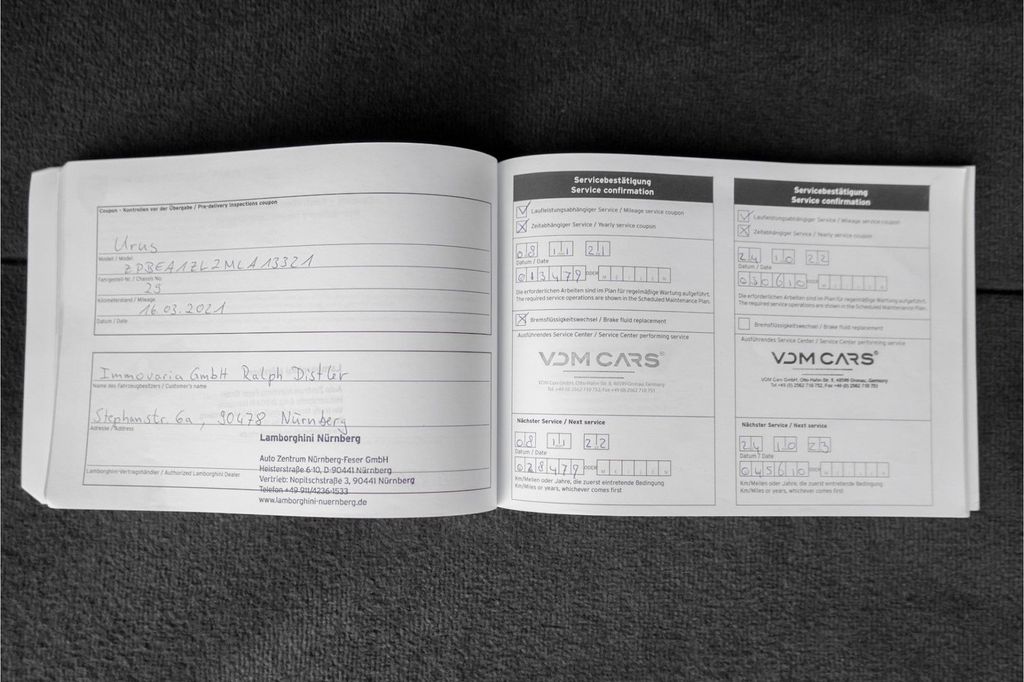 Coupon - Kontrollen vor der Übergabe / Pre-delivery inspections coupon
Urus
Modell / Model
ZPBEA1ZL2MLA13321
Fahrgestell-Nr. / Chassis No.
29
Kilometerstand / Mileage
16.03.2021
Datum / Date
Immovaria GmbH Ralph Distler
Name des Fahrzeugbesitzers / Customer's name
Stephanstr. 6a, 90478 Nürnberg
Adresse / Address
Lamborghini Nürnberg
Auto Zentrum Nürnberg-Feser GmbH
Heisterstraße 6-10, D-90441 Nürnberg
Vertrieb: Nopitschstraße 3, 90441 Nürnberg
Lamborghini-Vertragshändler / Authorized Lamborghini Dealer
Telefon +49 911/4236-1533
www.lamborghini-nuernberg.de
Servicebestätigung
Service confirmation
Laufleistungsabhängiger Service / Mileage service coupon
Zeitabhängiger Service / Yearly service coupon
08 11 21
Datum / Date
013479 ODER
Die erforderlichen Arbeiten sind im Plan für regelmäßige Wartung aufgeführt.
The required service operations are shown in the Scheduled Maintenance Plan.
Bremsflüssigkeitswechsel / Brake fluid replacement
Ausführendes Service Center / Service Center performing service
VDM CARS
VDM Cars GmbH, Otto-Hahn-Str. 9, 48599 Gronau, Germany
Tel. +49 (0) 2562 718 752, Fax +49 (0) 2562 718 751
Nächster Service / Next service
08 11 22
Datum / Date
028479 ODER
Km/Meilen oder Jahre, die zuerst eintretende Bedingung
Km/Miles or years, whichever comes first
Servicebestätigung
Service confirmation
Laufleistungsabhängiger Service / Mileage service coupon
Zeitabhängiger Service / Yearly service coupon
24 10 22
Datum / Date
030610 ODER
Die erforderlichen Arbeiten sind im Plan für regelmäßige Wartung aufgeführt.
The required service operations are shown in the Scheduled Maintenance Plan.
Bremsflüssigkeitswechsel / Brake fluid replacement
Ausführendes Service Center / Service Center performing service
VDM CARS
VDM Cars GmbH, Otto-Hahn-Str. 9, 48599 Gronau, Germany
Tel. +49 (0) 2562 718 752, Fax +49 (0) 2562 718 751
Nächster Service / Next service
24 10 23
Datum / Date
045610 ODER
Km/Meilen oder Jahre, die zuerst eintretende Bedingung
Km/Miles or years, whichever comes first